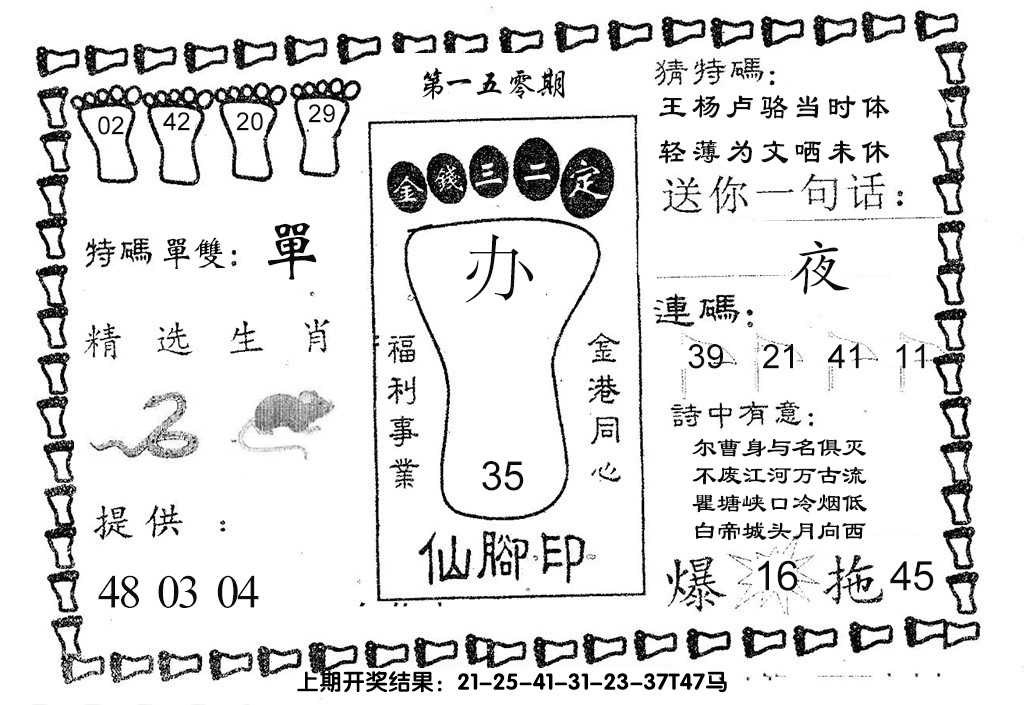 第一五零期
02 42 20 29
特碼單雙：單
精选生肖
提供：
48 03 04
金錢三二定
办
福利事業
金港同心
35
仙腳印
猜特碼：
王杨卢骆当时体
轻薄为文哂未休
送你一句话：
夜
連碼：
39 21 41 11
詩中有意：
尔曹身与名俱灭
不废江河万古流
瞿塘峡口冷烟低
白帝城头月向西
爆 16 拖 45
上期开奖结果：21-25-41-31-23-37T47马